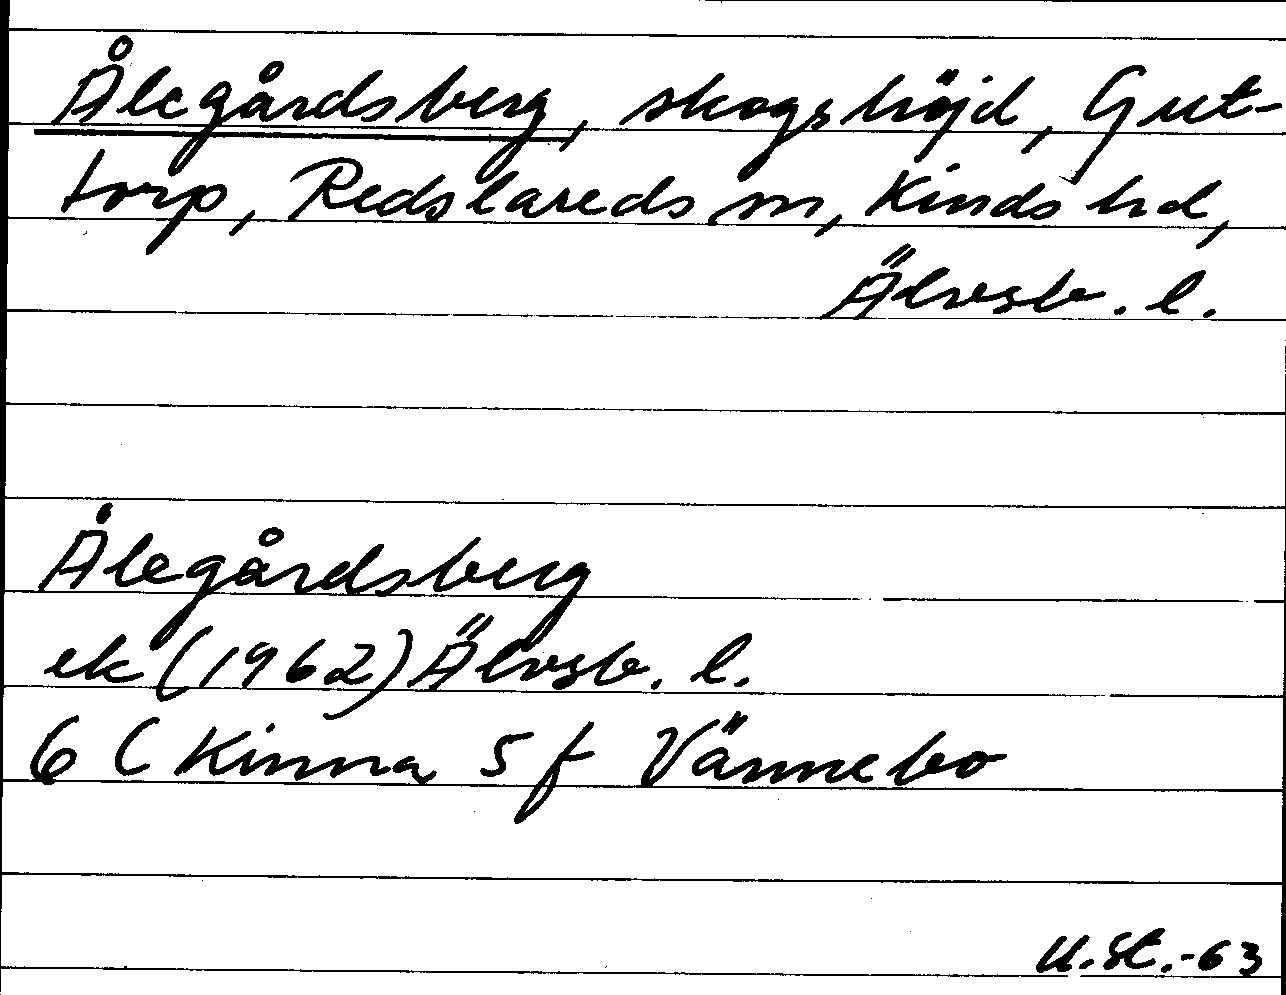 Ålegårdsberg, skogshöjd, Gut-
torp, Redslareds sn, Kinds hd,
Älvsb. l.
Ålegårdsberg
ek (1962) Älvsb. l.
6 C Kinna 5 f Vännebo
U.St.-63